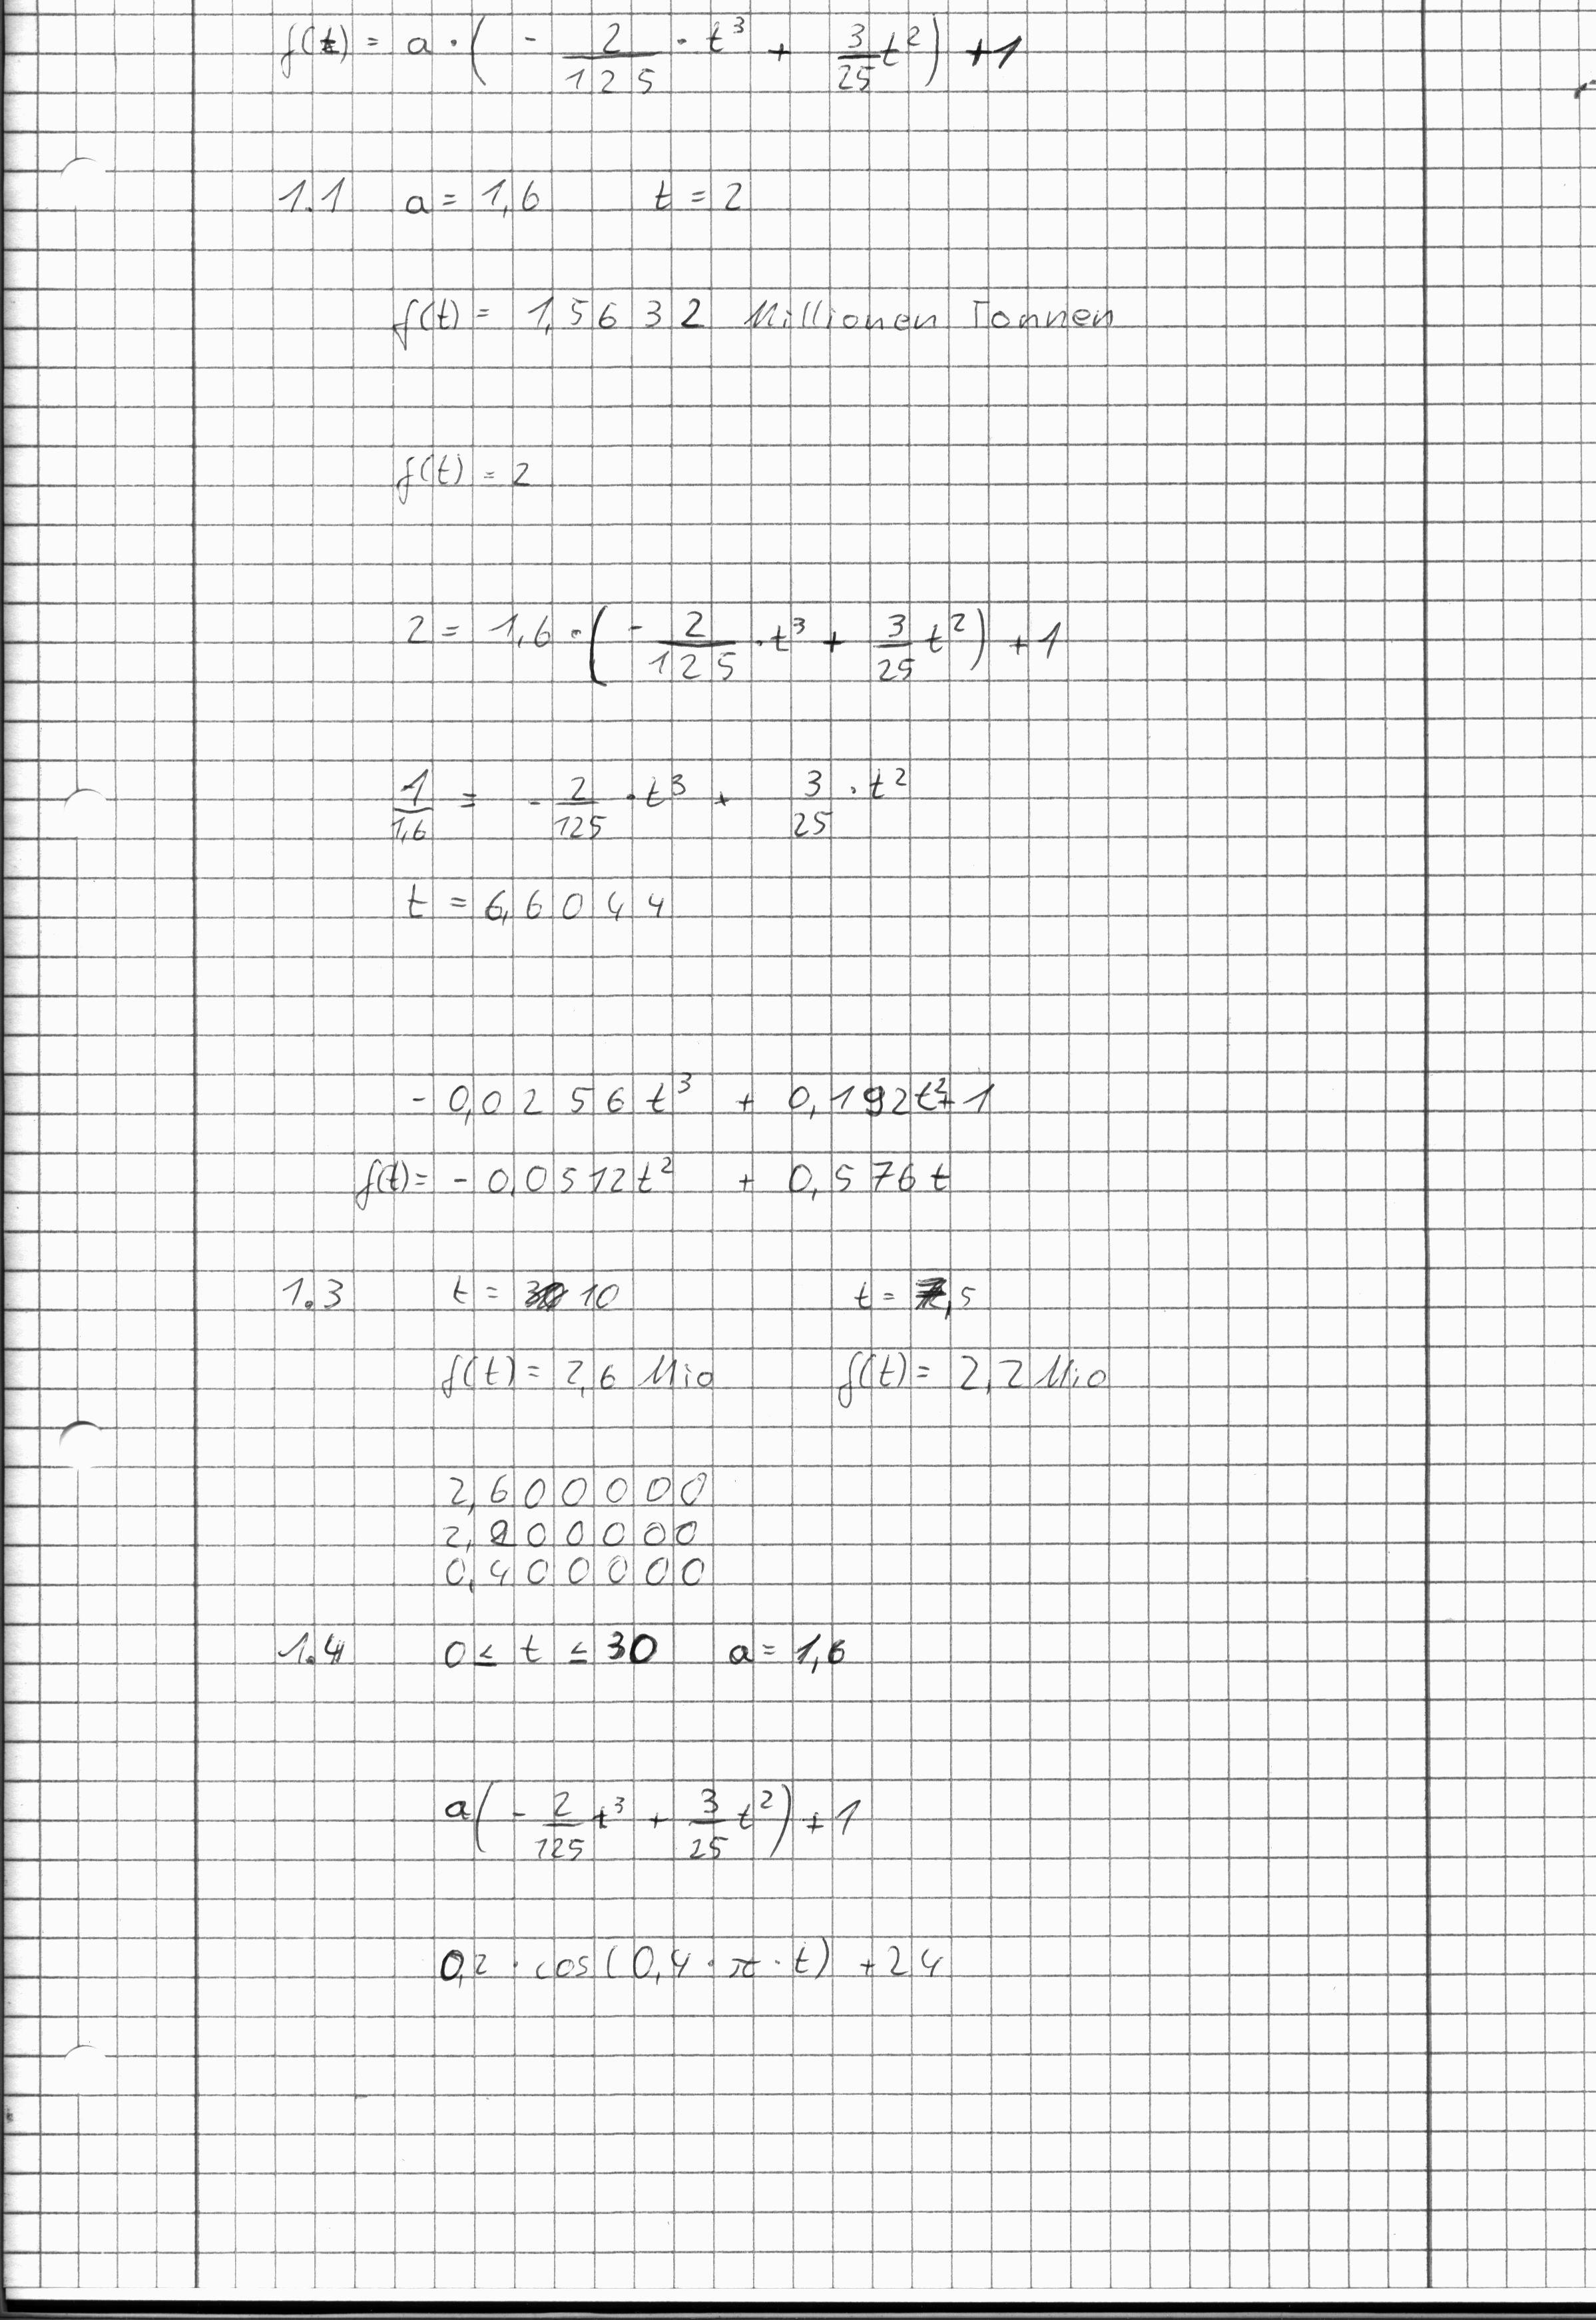 f(t) = a · ( - 2/125 · t³ + 3/25 t² ) + 1
1.1 a = 1,6 t = 2
f(t) = 1,5632 Millionen Tonnen
f(t) = 2
2 = 1,6 · ( - 2/125 · t³ + 3/25 t² ) + 1
1/1,6 = - 2/125 · t³ + 3/25 · t²
t = 6,6044
- 0,0256 t³ + 0,192t² + 1
f(t) = - 0,0512t² + 0,576t
1.3 t = 10 t = ,5
f(t) = 2,6 Mio f(t) = 2,2 Mio
2,600000
2,200000
0,400000
1.4 0 ≤ t ≤ 30 a = 1,6
a ( - 2/125 t³ + 3/25 t² ) + 1
0,2 · cos ( 0,4 · π · t ) + 24